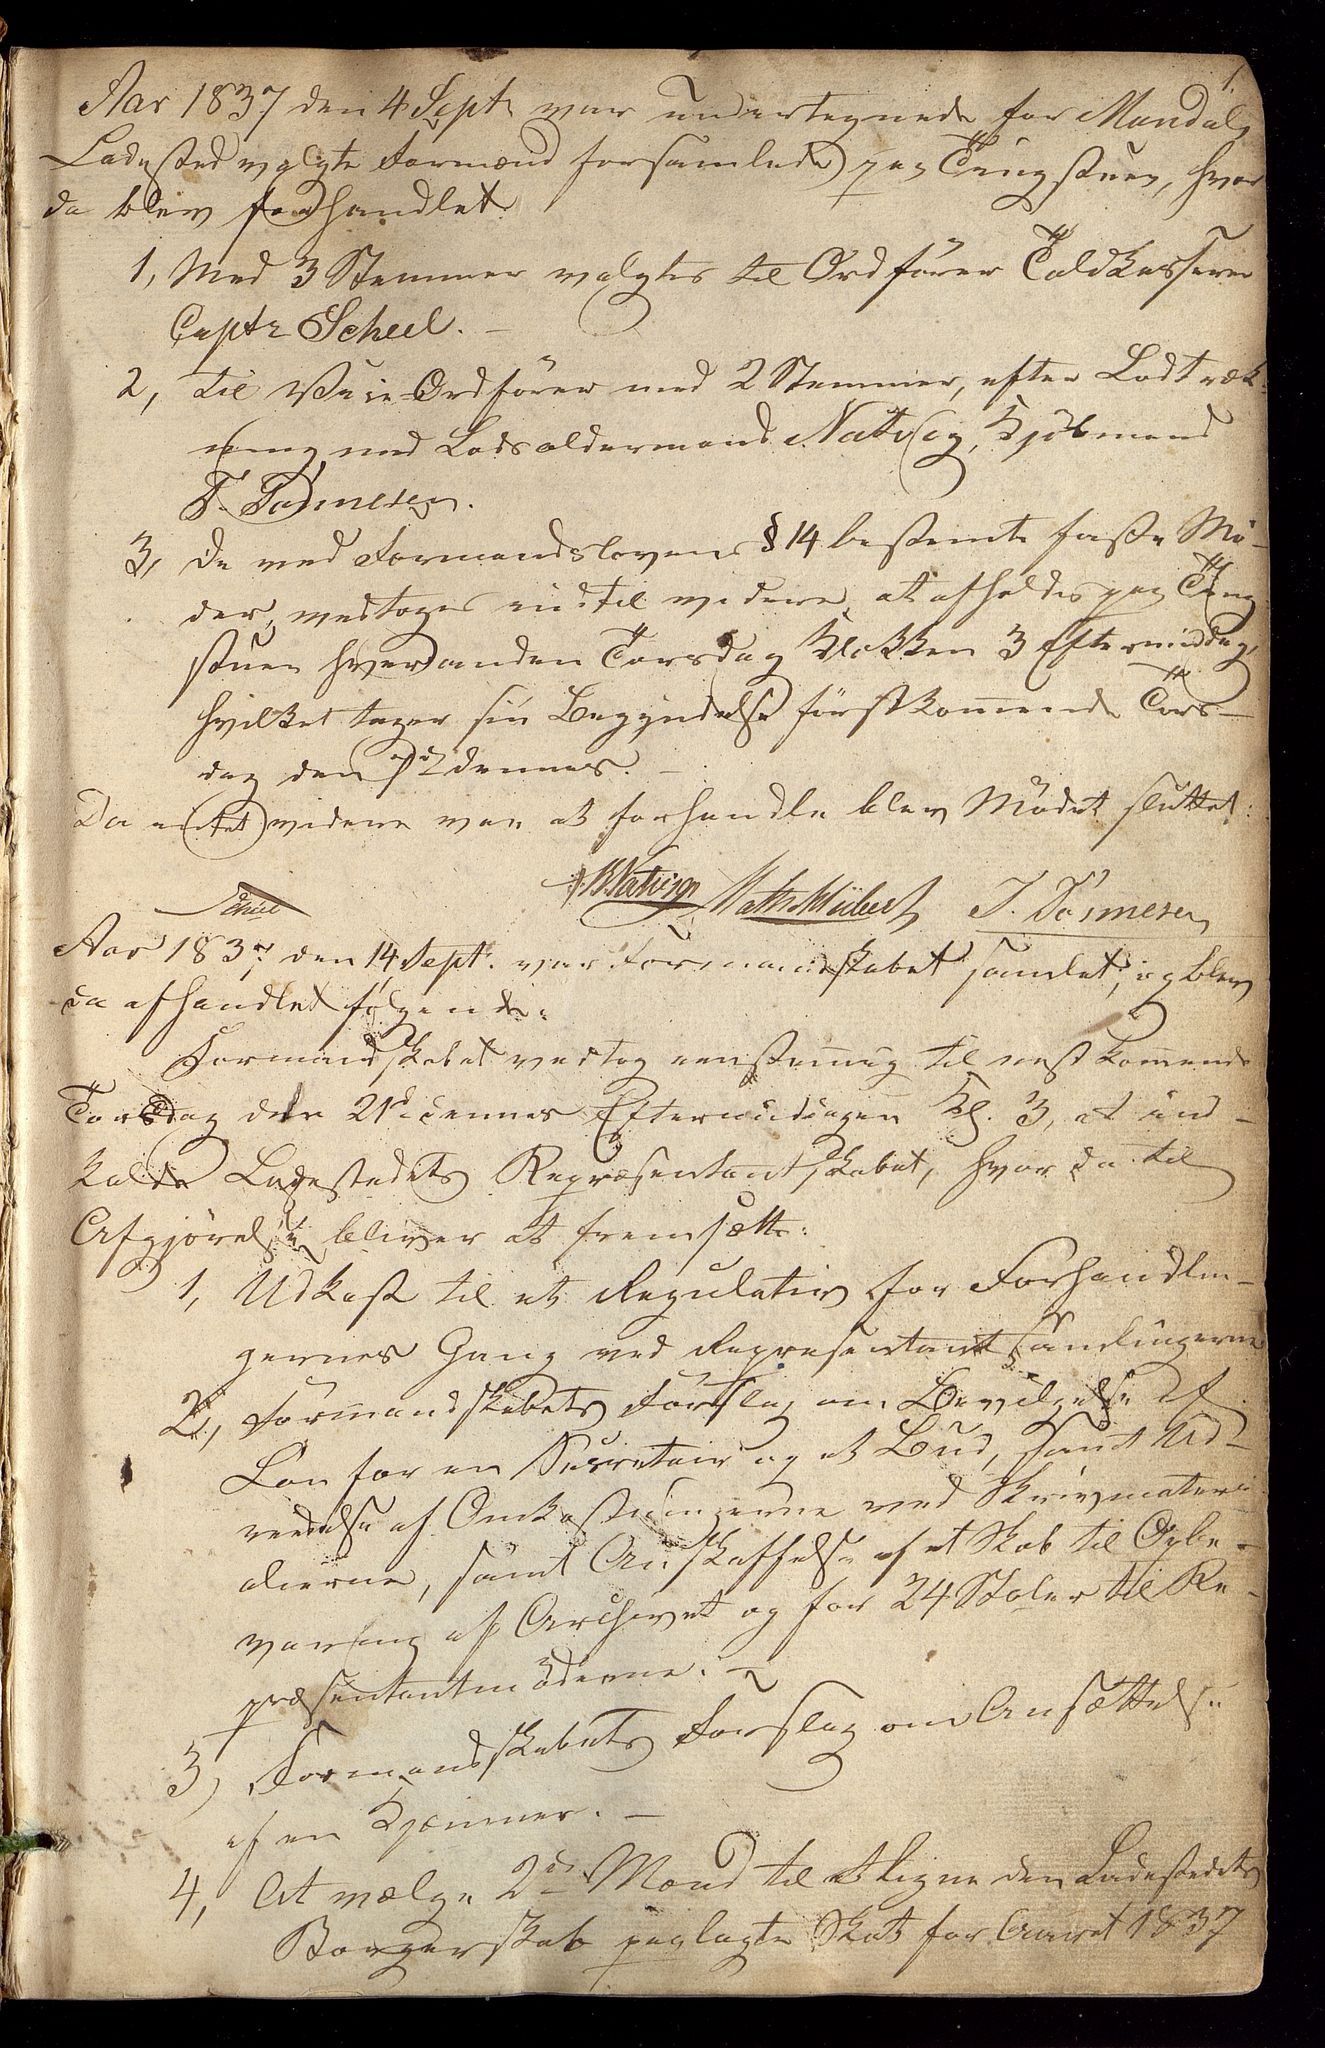 1.
Aar 1837 den 4 Sept var undertegnede for Mandals
Ladested valgte Formænd forsamlede paa Tingstuen, hvor
da blev forhandlet:
1, Med 3 Stemmer valgtes til Ordfører Toldkasserer
Captn Scheel. –
2, til Vice-Ordfører med 2 Stemmer, efter Lodtræk-
ning med Lodsoldermand Natvig, Kjøbmand
T. Tørnesen.
3, De ved Formandsloven § 14 bestemte faste Mø-
der, vedtoges indtil videre at afholdes paa Ting
stuen hver anden Torsdag Klokken 3 Eftermiddag,
hvilket tager sin Begyndelse førstkommende Tors-
dag den 7de dennes. –
Da intet videre var at forhandle blev Mødet sluttet.
Scheel Natvig T. Tørnesen
Aar 1837 den 14 Sept. var Formandskabet samlet, og blev
da afhandlet følgende:
Formandskabet vedtog eenstemig til nestkommende
Torsdag den 21de dennes Eftermiddagen Kl. 3, at ind-
kalde Ladestedets Repræsentantskabet, hvor da til
Afgjørelse bliver at fremsætte:
1, Udkast til et Regulativ for Forhandlin-
gernes Gang ved Repræsentantsamlingerne
2, Formandskabets Forslag om Bevilgelse af
Løn for en Secretair og et Bud, samt Ud-
redelse af Omkostningerne ved Skrivmateri-
alierne, samt Anskaffelse af et Skab til Opbe-
varing af Archivet og for 24 Stoler til Re-
præsentantmøderne. –
3, Formandskabets Forslag om Ansættelse
af en Kjæmner. –
4, At vælge 2de Mænd til at ligne den Ladestedets
Borgerskab paalagte Skat for Aaret 1837